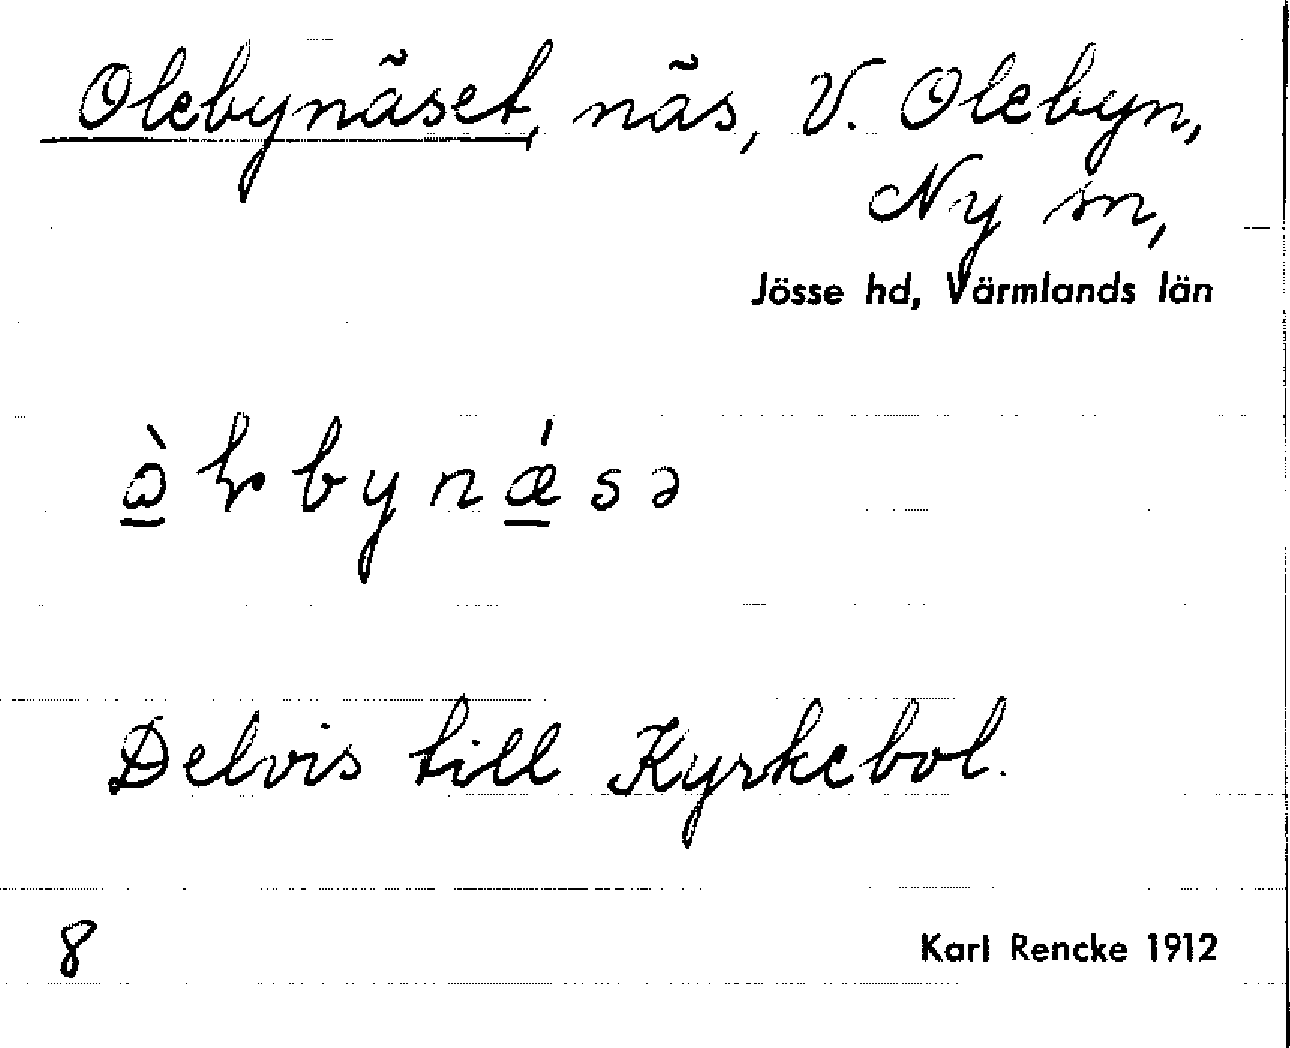 Olebynäset, näs, V. Olebyn,
Ny sn,
Jösse hd, Värmlands län
Delvis till Kyrkebol.
8
Karl Rencke 1912